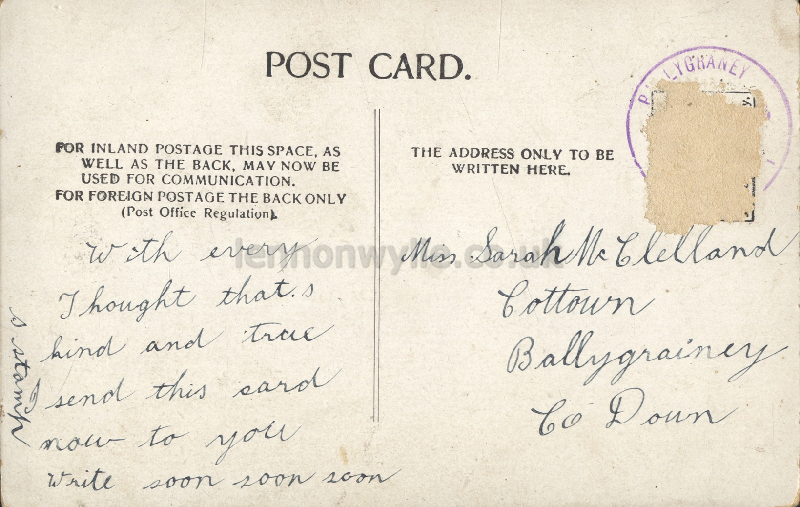 POST CARD.
FOR INLAND POSTAGE THIS SPACE, AS
WELL AS THE BACK, MAY NOW BE
USED FOR COMMUNICATION.
FOR FOREIGN POSTAGE THE BACK ONLY
(Post Office Regulation).
With every
Thought that.s
kind and true
send this card
now to you
Write soon soon soon
s stamp
THE ADDRESS ONLY TO BE
WRITTEN HERE.
BALLYGRANEY
Miss Sarah McClelland
Cottown
Ballygrainey
Co Down
lennonwylie.co.uk